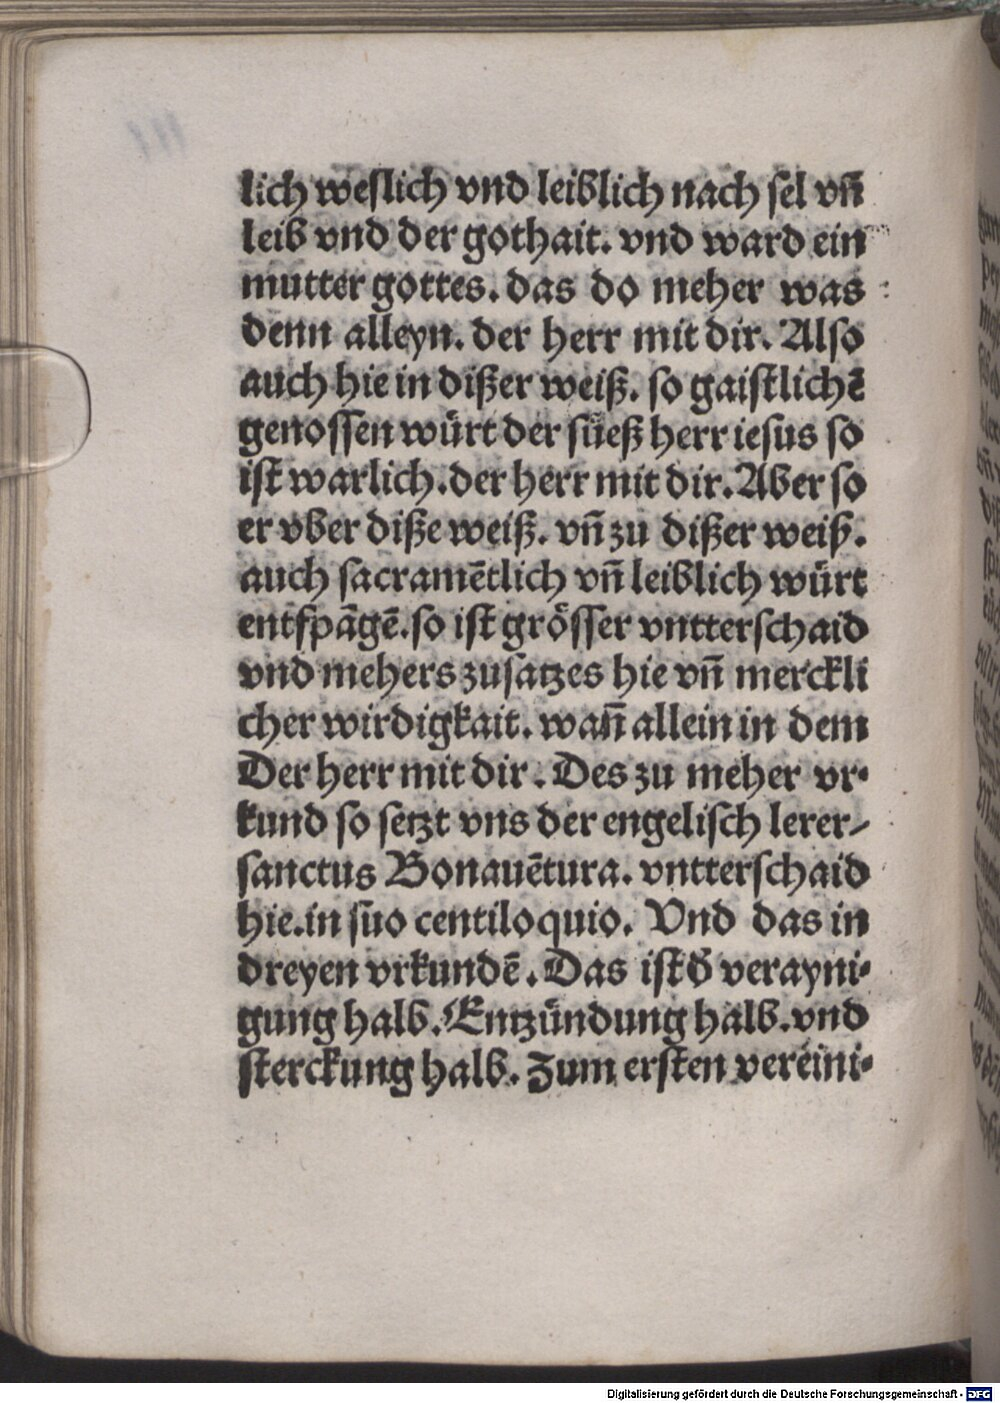 lich weſlich vnd leiblich nach ſel vñ
leib vnd der gothait. vnd ward ein
mutter gottes. das do meher was
denn alleyn. der herr mit dir. Alſo
auch hie in dißer weiß. ſo gaiſtlichē
genoſſen würt der ſüeß herr ieſus ſo
iſt warlich. der herr mit dir. Aber ſo
er vber diße weiß. vñ zu dißer weiß.
auch ſacramētlich vñ leiblich würt
entfpāgē. ſo iſt gröſſer vntterſchaid
vnd mehers zuſatzes hie vñ merckli
cher wirdigkait. wañ allein in dem
Der herr mit dir. Des zu meher vr-
kund ſo ſetzt vns der engeliſch lerer/
ſanctus Bonauētura. vntterſchaid
hie. in ſuo centiloquio. Vnd das in
dreyen vrkundē. Das iſt đ verayni-
gung halb. Entzündung halb. vnd
ſterckung halb. Zum erſten vereini-
Digitalisierung gefördert durch die Deutsche Forschungsgemeinschaft - DFG